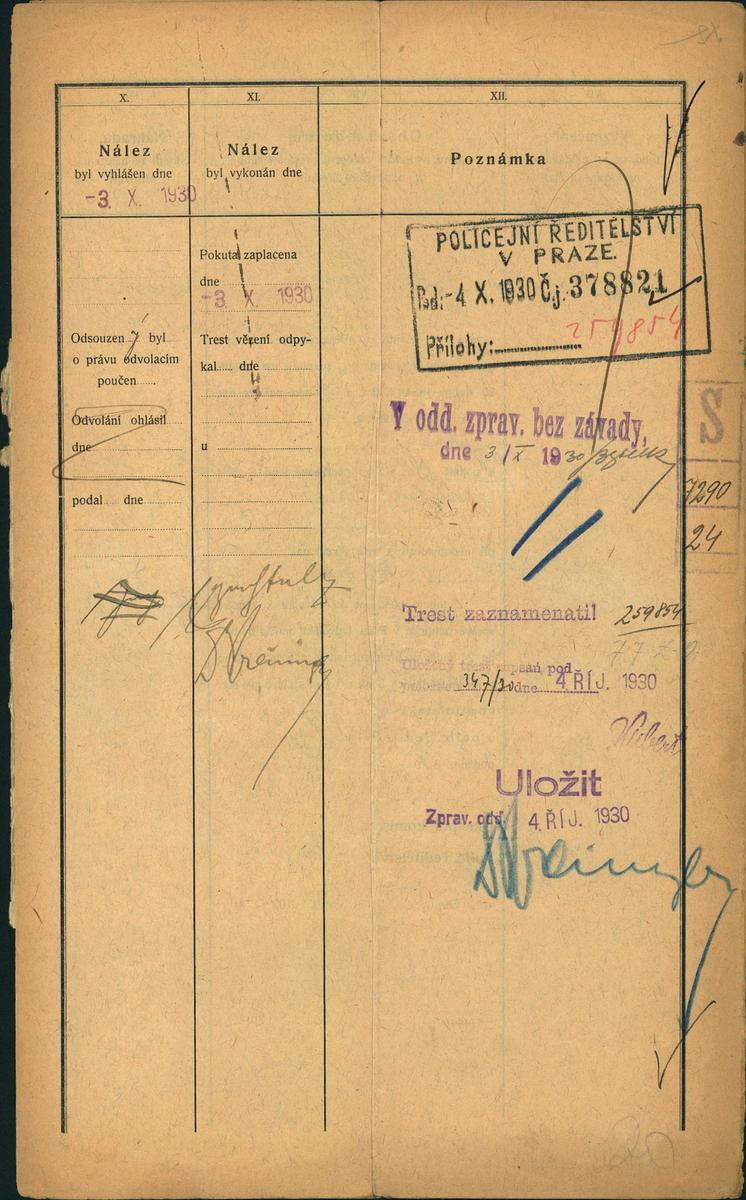 X.
Nález
byl vyhlášen dne
-3. X. 1930
Odsouzen ý byl
o právu odvolacím
poučen
Odvolání ohlásil
dne
podal dne
XI.
Nález
byl vykonán dne
Pokuta zaplacena
dne
-3. X. 1930
Trest vězení odpy-
kal dne
u
XII.
Poznámka
POLICEJNÍ ŘEDITELSTVÍ
V PRAZE.
Pod: -4 X. 1930 Čj. 378821
259854
Přílohy:
V odd. zprav. bez závady,
dne 3/X 1930
S
7290
24
Trest zaznamenati!
259854
Uložený trest zapsán pod
347/30 dne 4. ŘÍJ. 1930
Uložit
Zprav. odd. 4. ŘÍJ. 1930